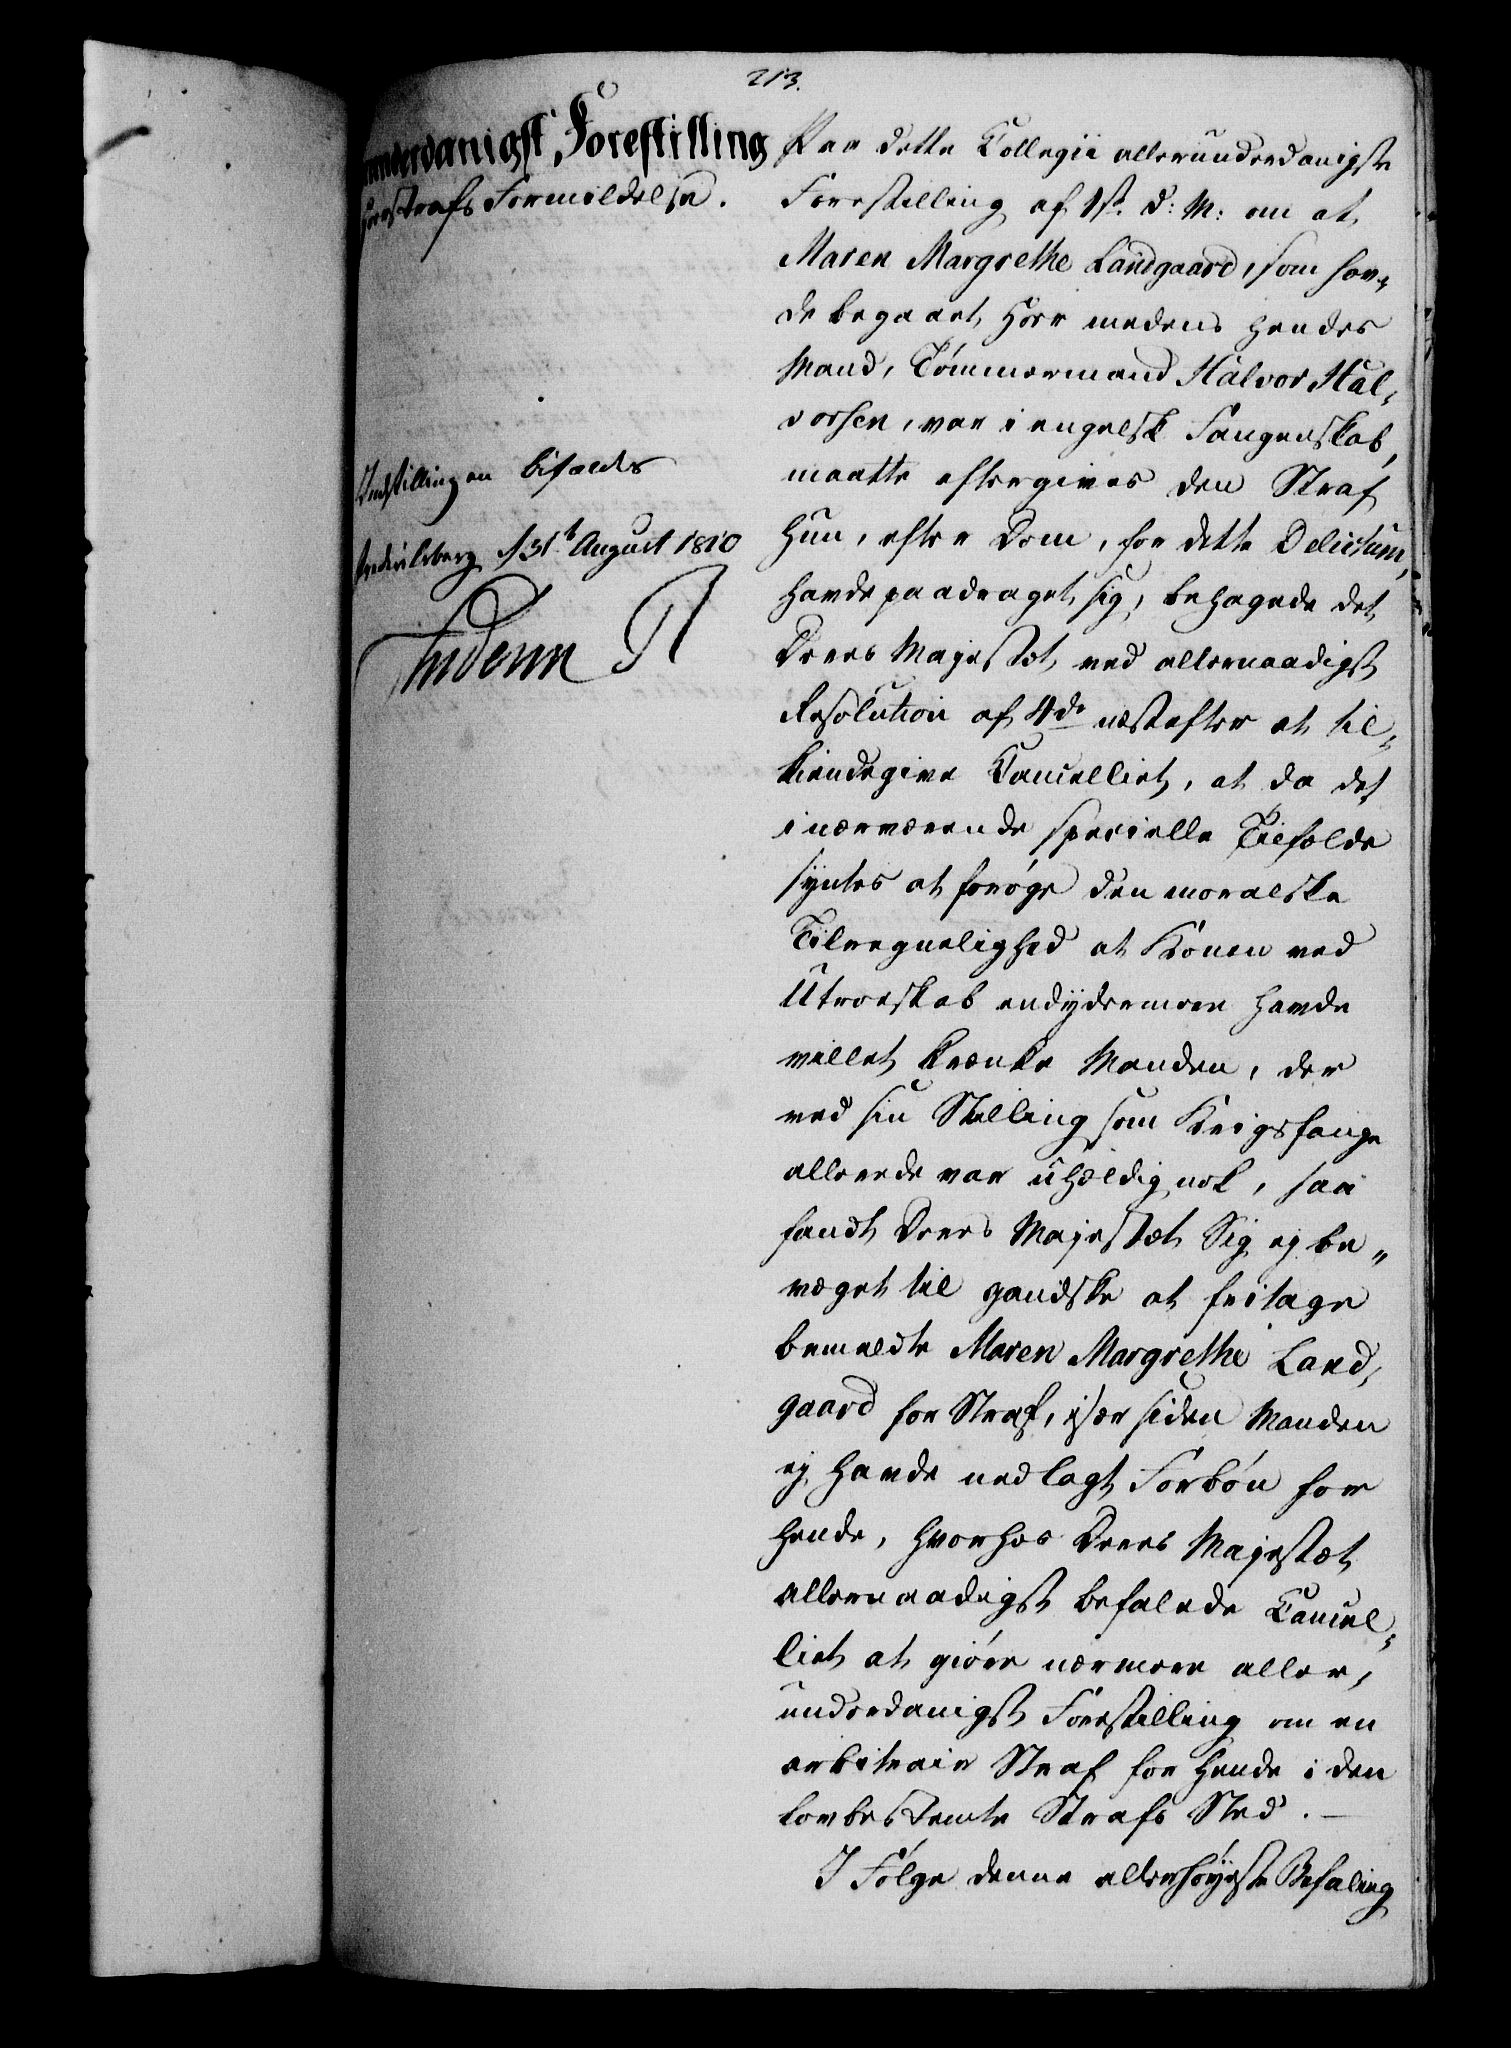 213.
allerunderdanigst Forestilling
Hoerstrafs Formildelse.
Indstillingen bifaldes
Frederiksberg d 31t August 1810
Frederik R
Paa dette Collegii allerunderdanigste
Forestilling af 1ste d: M: om at
Maren Margrethe Landgaard, som hav-
de begaaet Hoer medens hendes
Mand, Tømmermand Halvor Hal-
vorsen, var i engelsk Fangenskab,
maatte eftergives den Straf
hun, efter Dom, for dette Delictum,
havde paadraget sig, behagede det
Deres Majestæt ved allernaadigst
Resolution af 4de næstefter at til-
kiendegive Cancelliet, at da det
i nærværende specielle Tilfælde
syntes at forøge den moralske
Tilregnelighed at Konen ved
Utroeskab endydermere havde
villet krænke Manden, der
ved sin Stilling som Krigsfange
allerede var uheldig nok, saa
fandt Deres Majestæt Sig ej be-
væget til gandske at fritage
bemeldte Maren Margrethe Land-
gaard for Straf, især siden Manden
ej havde nedlagt Forbøn for
hende, hvorhos Deres Majestæt
allernaadigst befalede Cancel-
liet at giøre nærmere aller-
underdanigst Forestilling om en
arbitrair Straf for hende i den
lovbestemte Strafs Sted. –
I Følge denne allerhøyeste Befaling